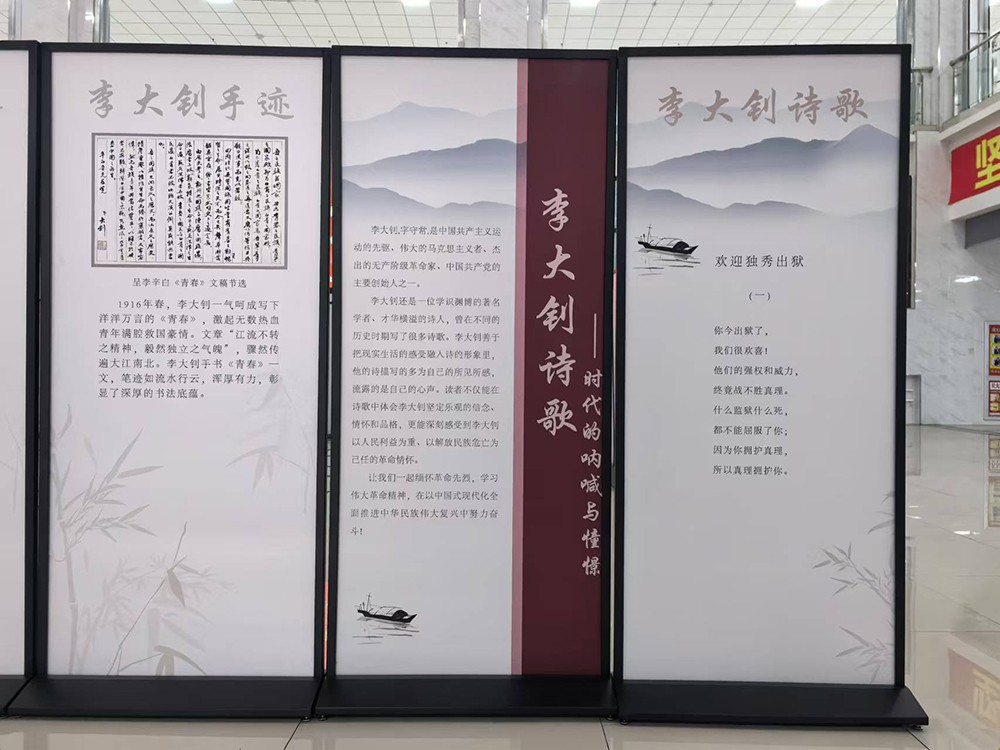 李大钊手迹
呈李辛白《青春》文稿节选
1916年春，李大钊一气呵成写下
洋洋万言的《青春》，激起无数热血
青年满腔救国豪情。文章“江流不转
之精神，毅然独立之气魄”，骤然传
遍大江南北。李大钊手书《青春》一
文，笔迹如流水行云，浑厚有力，彰
显了深厚的书法底蕴。
李大钊,字守常,是中国共产主义运
动的先驱、伟大的马克思主义者、杰
出的无产阶级革命家、中国共产党的
主要创始人之一。
李大钊还是一位学识渊博的著名
学者、才华横溢的诗人，曾在不同的
历史时期写了很多诗歌。李大钊善于
把现实生活的感受融人诗的形象里，
他的诗描写的多为自己的所见所感，
流露的是自己的心声。读者不仅能在
诗歌中体会李大钊坚定乐观的信念、
情怀和品格，更能深刻感受到李大钊
以人民利益为重、以解放民族危亡为
己任的革命情怀。
让我们一起缅怀革命先烈，学习
伟大革命精神，在以中国式现代化全
面推进中华民族伟大复兴中努力奋
斗!
李大钊诗歌
——时代的呐喊与憧憬
李大钊诗歌
欢迎独秀出狱
(一)
你今出狱了，
我们很欢喜!
他们的强权和威力，
终竟战不胜真理。
什么监狱什么死，
都不能屈服了你;
因为你拥护真理，
所以真理拥护你。
坚